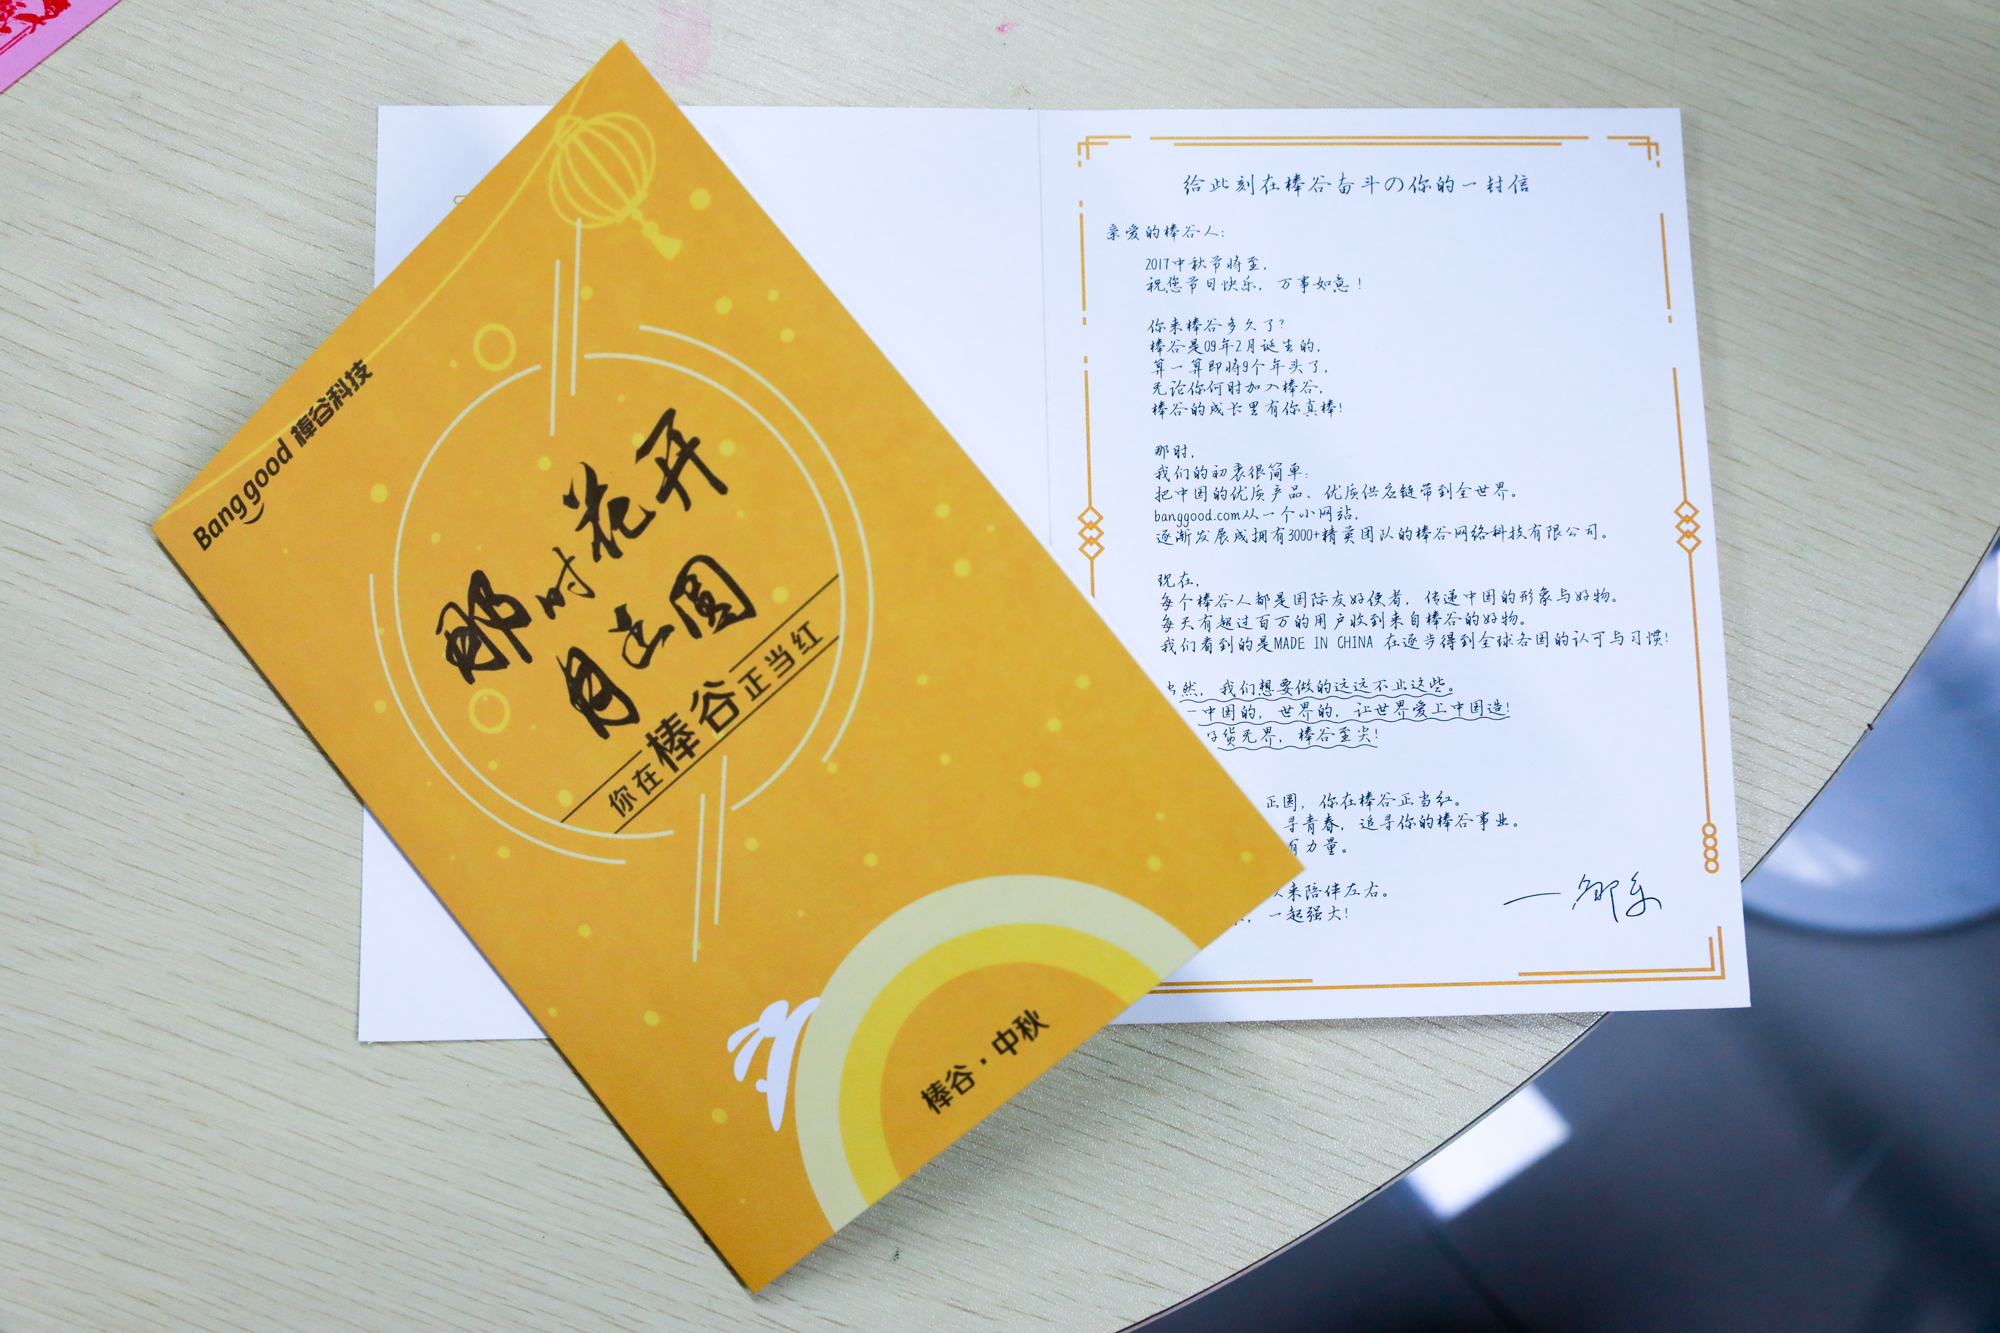 Banggood 棒谷科技
那时花开
月正圆
你在棒谷正当红
棒谷·中秋
给此刻在棒谷奋斗の你的一封信
亲爱的棒谷人:
2017中秋节将至,
祝您节日快乐, 万事如意!
你来棒谷多久了?
棒谷是09年2月诞生的,
算一算即将9个年头了,
无论你何时加入棒谷,
棒谷的成长里有你真棒!
那时,
我们的初衷很简单:
把中国的优质产品、优质供应链带到全世界。
banggood.com从一个小网站,
逐渐发展成拥有3000+精英团队的棒谷网络科技有限公司。
现在,
每个棒谷人都是国际友好使者, 传递中国的形象与好物。
每天有超过百万的用户收到来自棒谷的好物。
我们看到的是MADE IN CHINA 在逐步得到全球各国的认可与习惯!
当然, 我们想要做的远远不止这些。
一中国的, 世界的, 让世界爱上中国造!
好货无界, 棒谷至尖!
正圆, 你在棒谷正当红。
寻青春, 追寻你的棒谷事业。
有力量。
以来陪伴左右。
一起强大!
一邹乐